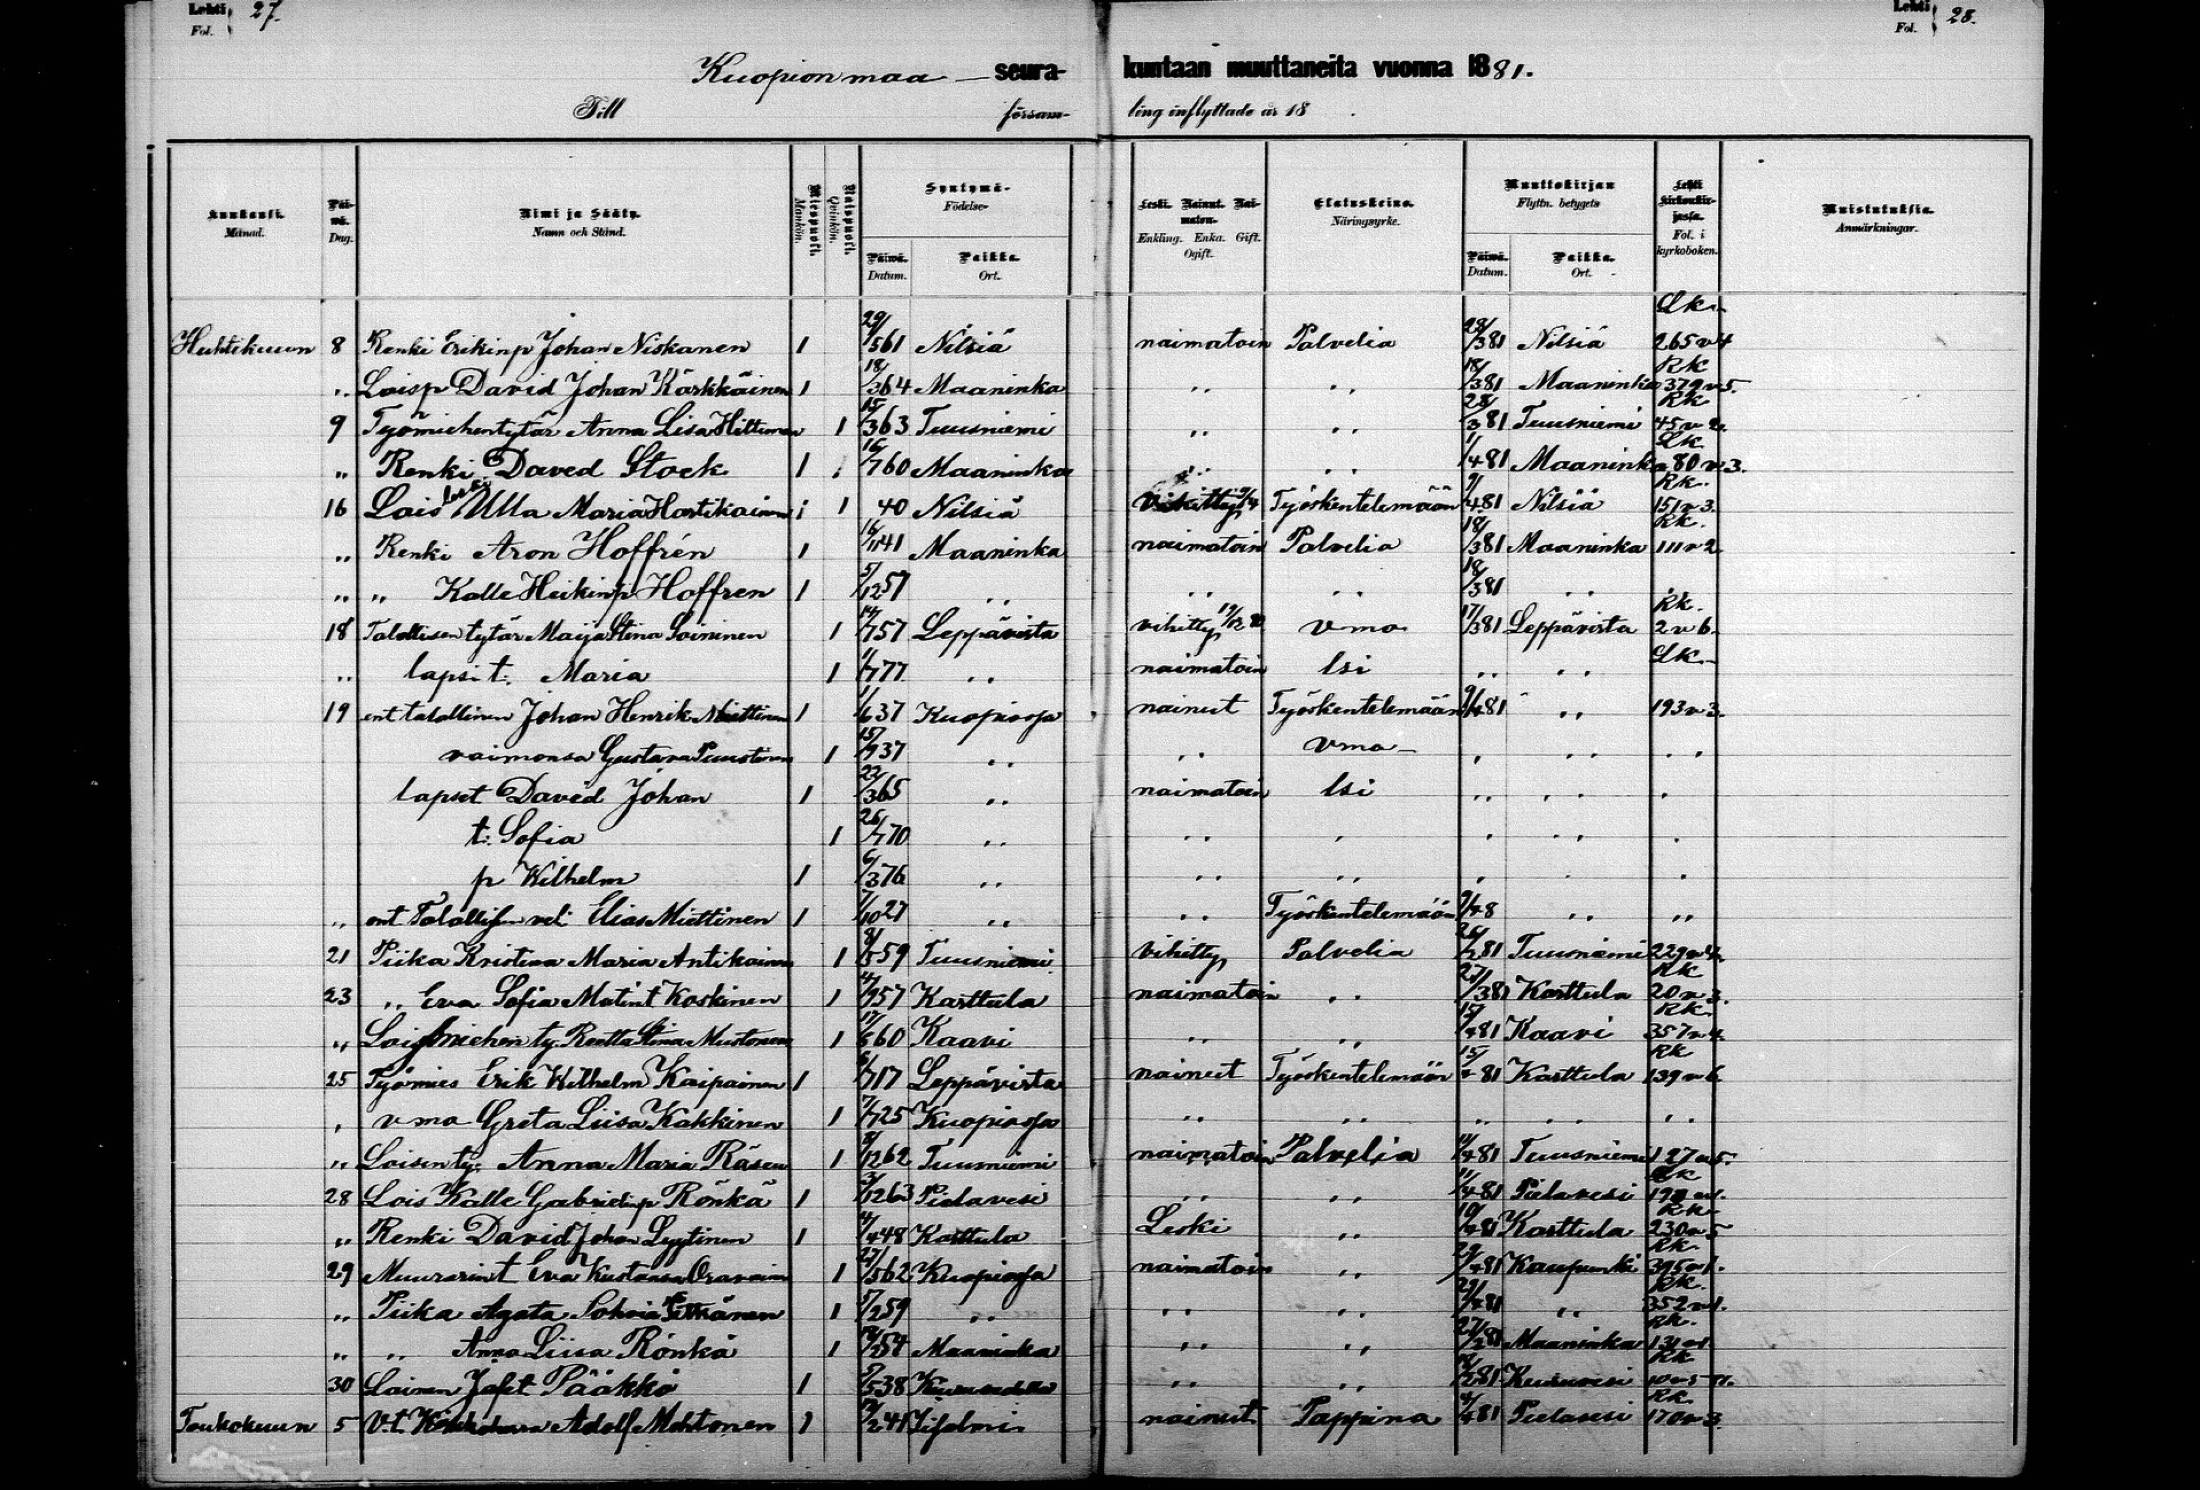 Lehti 27.
Fol.
Lehti 28.
Fol.
Kuopion maa seura- kuntaan muuttaneita vuonna 1881.
Till församling inflyttade år 18 .
Kuukausi. Månad.
Päiwä. Dag.
Nimi ja Sääty. Namn och Stånd.
Miespuoli. Mankön.
Naispuoli. Qvinkön.
Syntymä- Födelse-
Päiwä. Datum.
Paikka. Ort.
Leski. Nainut. Naimaton.
Enkling. Enka. Gift. Ogift.
Elatuskeino. Näringsyrke.
Muuttokirjan Flyttn. betygets
Päiwä. Datum.
Paikka. Ort.
Lehti kirkonkirjassa. Fol. i kyrkoboken.
Muistutuksia. Anmärkningar.
Huhtikuun 8 Renki Erikinp Johan Niskanen 1 29/561 Nilsiä naimatoin Palvelia 28/381 Nilsiä Lk. 265 v 4
„ Loisp David Johan Kärkkäinen 1 18/364 Maaninka „ „ 18/381 Maaninka Rk 379 v 5.
9 Työmiehentytär Anna Lisa 1 15/363 Tuusniemi „ „ 28/381 Tuusniemi Rk 45 v 2.
„ Renki David Stock 1 16/760 Maaninka „ „ 1/481 Maaninka Lk 80 v 3.
16 Lois leski Ulla Maria Hartikainen 1 40 Nilsiä Työskentelemään 9/481 Nilsiä Rk. 151 v 3.
„ Renki Aron Hoffrén 1 16/1141 Maaninka naimatoin Palvelia 18/381 Maaninka Rk. 111 v 2
„ „ Kalle Heikinp Hoffren 1 5/1257 „ „ „ 18/381 „ „
18 Talollisen tytär Maija Stina Soininen 1 14/757 Leppävirta vihitty Vmo 17/381 Leppävirta Rk. 2 v 6.
„ lapsi t. Maria 1 1/777 „ naimatoin lsi „ „ Lk.
19 ent talollinen Johan Henrik Miettinen 1 1/637 Kuopiossa nainut Työskentelemään 9/481 „ 193 v 3.
vaimonsa Gustava Puustinen 1 15/937 „ „ vmo „ „ „
lapset David Johan 1 22/365 „ naimatoin lsi „ „ „
t: Sofia 1 26/770 „ „ „ „ „ „
p Wilhelm 1 6/376 „ „ „ „ „
„ ent Talollisen veli Elias Miettinen 1 7/1027 „ „ Työskentelemään 9/48 „ „
21 Piika Kristina Maria Antikainen 1 8/559 Tuusniemi vihitty Palvelia 26/281 Tuusniemi
23 „ Eva Sofia Matint Koskinen 1 4/957 Karttula naimatoin „ 27/381 Karttula Rk 20 v 3.
„ Loismiehen ty. Reetta Stina Mustonen 1 17/660 Kaavi „ „ 15/481 Kaavi Rk. 357 v 4.
25 Työmies Erik Wilhelm Kaipainen 1 6/717 Leppävirta nainut Työskentelemään 15/481 Karttula Rk 139 v 6
„ vmo Greta Liisa Kakkinen 1 7/725 Kuopiossa „ „ „ „ „
„ Loisen ty. Anna Maria Räsen 1 8/1262 Tuusniemi naimatoin Palvelia 14/481 Tuusniemi 127 v 5.
28 Lois Kalle Gabrielinp Rönkä 1 3/1263 Pielavesi „ „ 11/481 Pielavesi
„ Renki David Johan Lyytinen 1 4/448 Karttula Leski „ 10/481 Karttula Rk 230 v 5
29 Muurarint Eva Kustaava Oravainen 1 27/562 Kuopiossa naimatoin „ 29/481 Kaupunki Rk. 395 v 1.
„ Piika Agata Sohvia Pitkänen 1 5/259 „ „ „ 29/481 „ Rk. 352 v 1.
„ „ Anna Liisa Rönkä 1 Maaninka „ „ 27/281 Maaninka Rk. 131 v 1.
30 Loinen Jafet Pääkkö 1 5/538 „ „ 18/281 Rk
Toukokuun 5 V.t. Adolf Mohtonen 1 12/241 Iisalmi nainut Pappina 4/481 Pielavesi Rk. 170 v 3